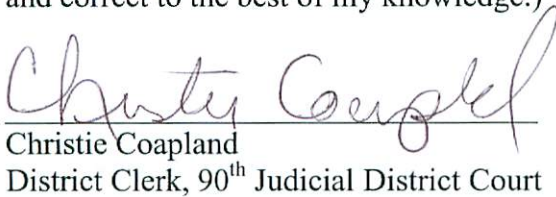 and correct to the best of my knowledge.)
Christie Coapland
Christie Coapland
District Clerk, 90th Judicial District Court